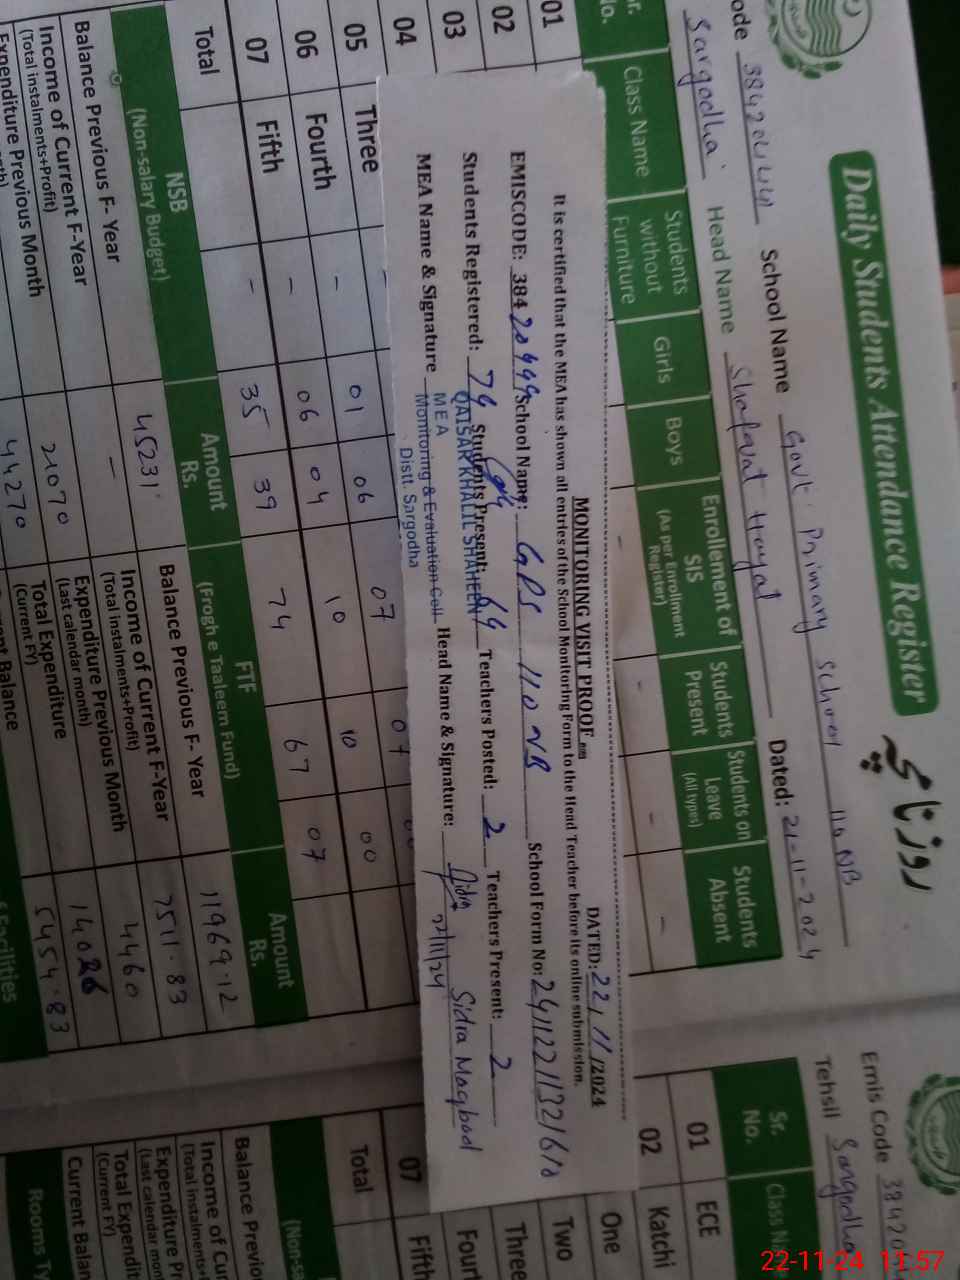 Daily Students Attendance Register
روزنامچہ
ode 38420444 School Name Govt. Primary School 110 NB
Sargodha Head Name Shafqat Hayat Dated: 21-11-2024
Sr. No. Class Name Students without Furniture Girls Boys Enrollement of SIS (As per Enrollment Register) Students Present Students on Leave (All types) Students Absent
01 - - - -
02
03
04
MONITORING VISIT PROOF
DATED: 22/11/2024
It is certified that the MEA has shown all entries of the School Monitoring Form to the Head Teacher before its online submission.
EMISCODE: 38420444 School Name: GPS 110 NB School Form No:
Students Registered: 74 Students Present: 64 Teachers Posted: 2 Teachers Present: 2
MEA Name & Signature Head Name & Signature: Sidra 22/11/24 Sidra Maqbool
QAISAR KHALIL SHAHEEN
MEA
Monitoring & Evaluation Cell
Distt. Sargodha
05 Three - 01 06 07 07
06 Fourth - 06 04 10 10 00
07 Fifth -
Total 35 39 74 67 07
NSB (Non-salary Budget) Amount Rs. FTF (Frogh e Taaleem Fund) Amount Rs.
Balance Previous F- Year 45231 Balance Previous F- Year 11969.12
Income of Current F-Year (Total instalments+Profit) - Income of Current F-Year (Total instalments+Profit) 7511.83
Expenditure Previous Month 21070 Expenditure Previous Month (Last calendar month) 4460
44270 Total Expenditure (Current FY)
5454.83
Emis Code 3842
Tehsil Sargodha
Sr. No. Class N
01 ECE
02 Katchi
One
Two
Three
Fourt
07 Fifth
Total
(Non-sa
Balance Previou
Income of Cu
(Total instalments+
Expenditure Pr
(Last calendar mon
Total Expendit
(Current FY)
Current Balan
Rooms Ty
22-11-24 11:57